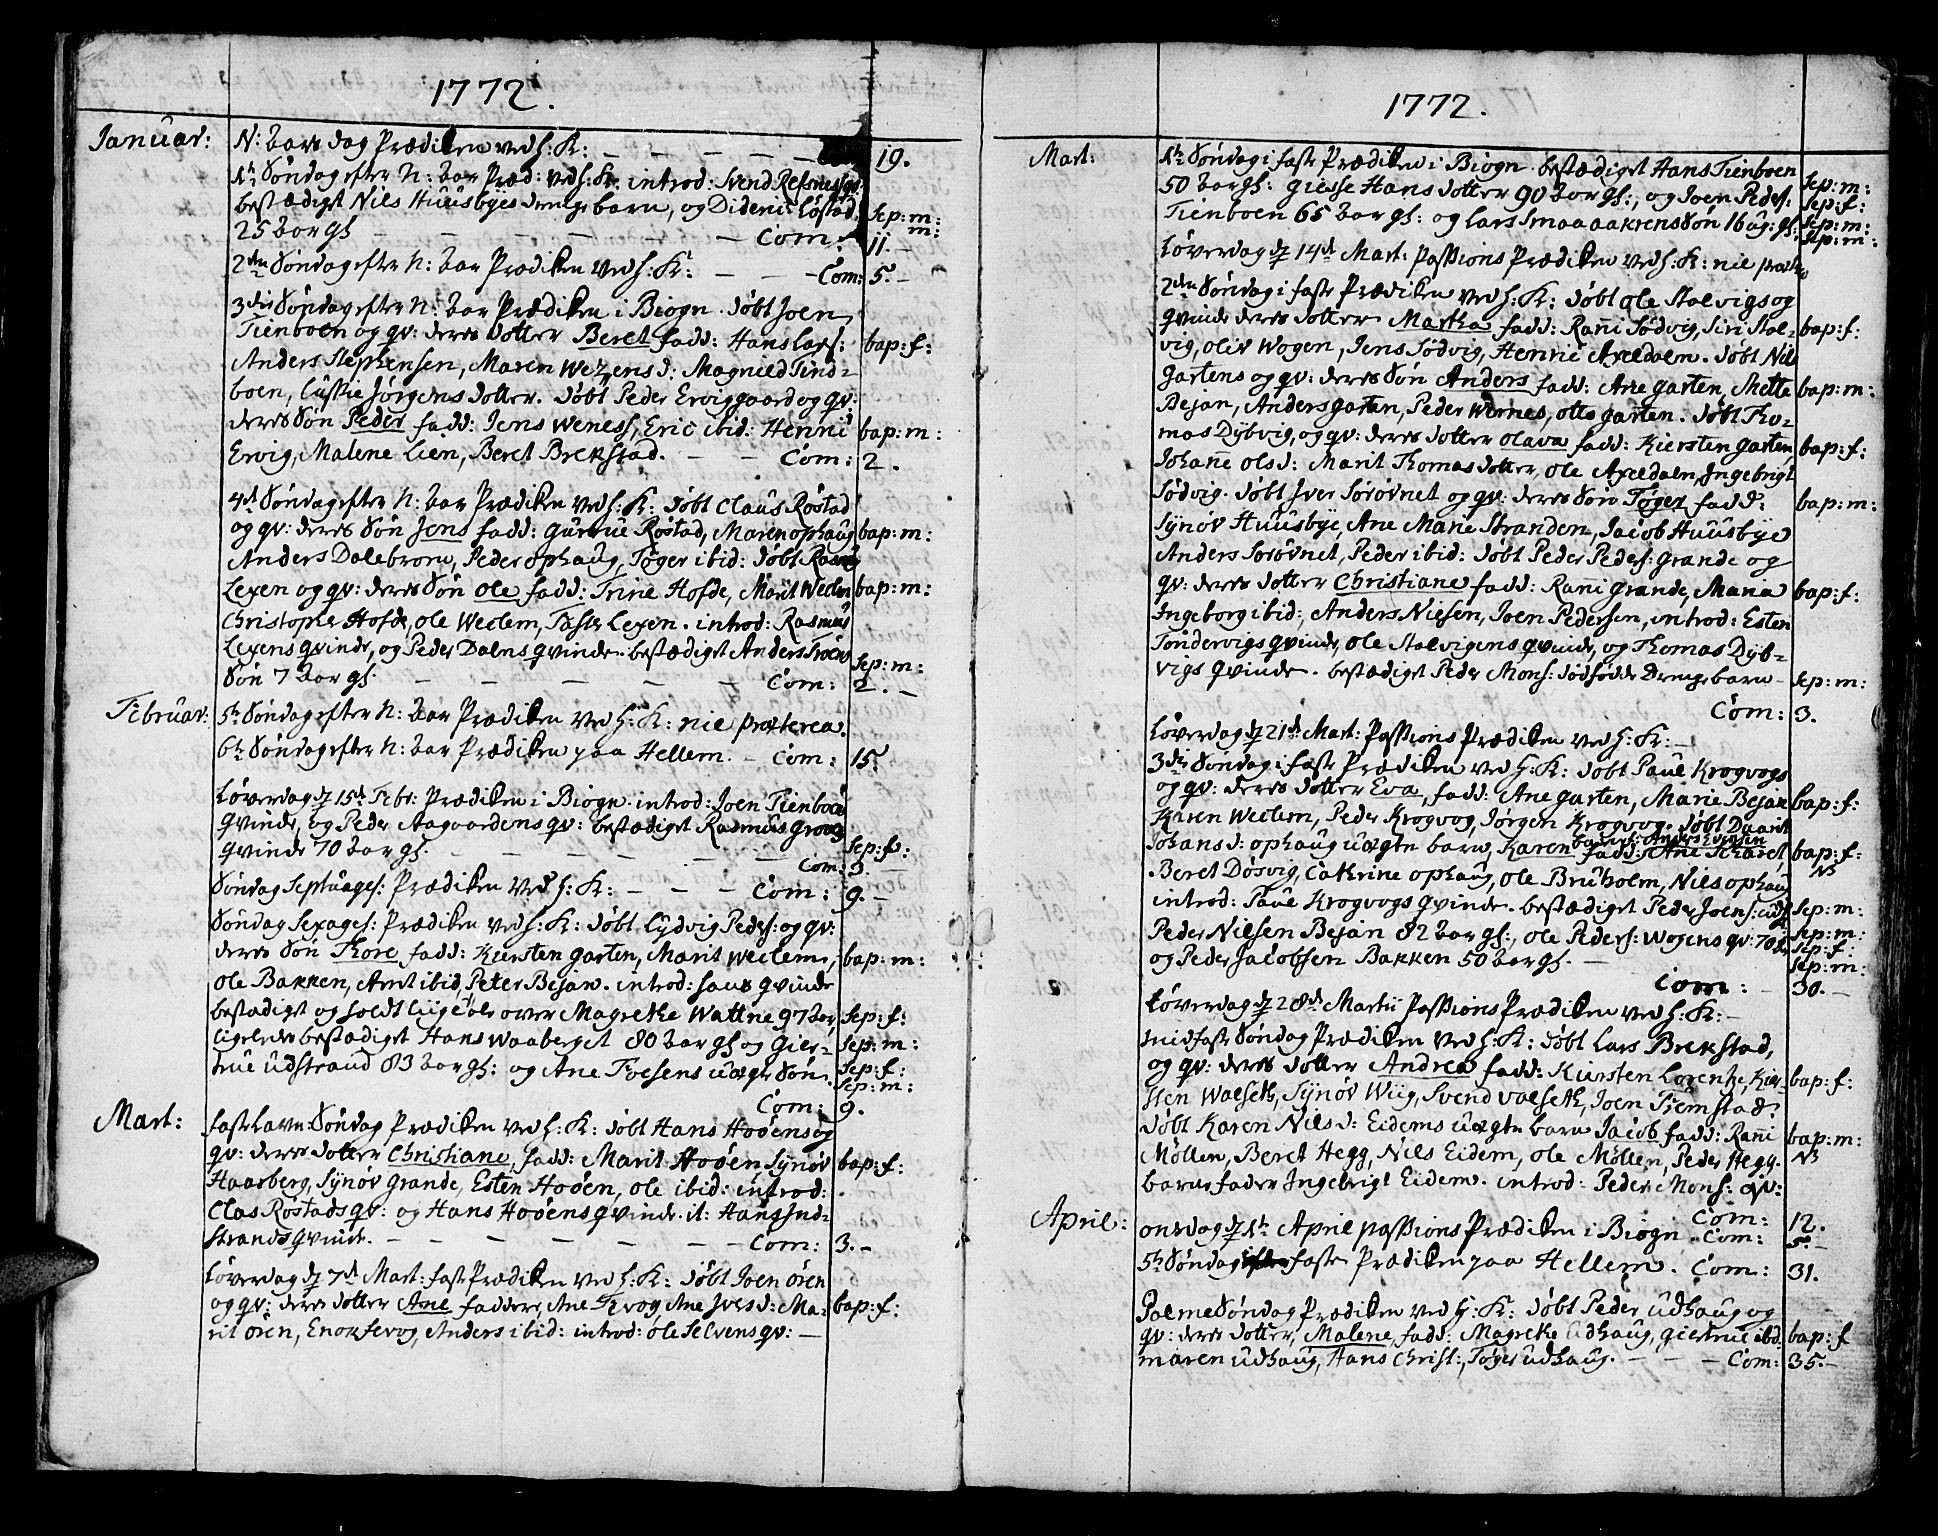 1772.
Januar: N: Aars dag Prædiken ved H: K: — — — — — 19.
1te Søndag efter N: Aar Præd: ved H: K: introd: Svend Refsnes qv:
bestædiget Nils Huusbyes drenge barn, og Dideric Løstad Sep: m:
25 Aar gl — — — — — Com: m: 11. —
2den Søndag efter N: Aar Prædiken ved H: K: — — — Com: 5. —
3die Søndag efter N: Aar Prædiken i Biogn. døbt Joen
Tienboen og qv: deres dotter Beret fadd: Hans Lars: bap: f:
Anders Stephensen, Maren Wezens d: Magnild Tind-
boen, Cissie Jørgens dotter. døbt Peder Erviggaard og qv:
deres Søn Peder fadd: Jens Weness, Eric ibid: Henric bap: m:
Ervig, Malene Lien, Beret Brekstad. — — Com: 2.
4de Søndag efter N: Aar Prædiken ved H: K: døbt Claus Røstad
og qv: deres Søn Jens fadd: Gurrue Røstad, Maren ophaug bap: m:
Anders Dalebrom, Peder ophaug, Tøger ibid: døbt Rasmus
Lexen og qv: deres Søn Ole fadd: Trine Hofde, Marit Weclem bap: m:
Christopher Hofde, ole Weclem, Taste Lexen. introd: Rasmus
Lexens qvinde, og Peder Dalms qvinde. bestædiget Anders Trøens
Søn 7 Aar gl. — — — — — Com: Sep: m: 2. —
Februar: 5te Søndag efter N: Aar Prædiken ved H: K: nil præterea.
6te Søndag efter N: Aar Prædiken paa Hellem. — Com: 15.
Løverdag d 15de Febr: Prædiken i Biogn. introd: Joen Tienboens
qvinde, og Peder Aagaardens qv: bestædiget Rasmus Groves
qvinde 70 Aar gl. — — — — — Sep: f:
Com: 3. —
Søndag Septuages: Prædiken ved H: K: — — — Com: 9. —
Søndag Sexages: Prædiken ved H: K: døbt Lydvig Peders: og qv:
deres Søn Thore fadd: Kiersten garten, Marit Weclem, bap: m:
ole Bakken, Arnt ibid, Peter Bejan. introd: hans qvinde
bestædiget og holdt Liigtale over Magrethe Wattne 97 Aar, Sep: f:
Ligeledes bestædiget Hans Waaberget 80 Aar gl og Gier- Sep: m:
true Udstrand 83 Aar gl: og Ane Foesens uægte Søn. Sep: f:
Sep: m:
Com: 9.
Mart: Fastelavns Søndag Prædiken ved H: K: døbt Hans Hoøens og
qv: deres dotter Christiane, fadd: Marit Hoøen, Synøv bap: f:
Haarberg, Synøv Grande, Esten Hoøen, ole ibid: introd:
Clas Røstads qv: og Hans Hoøens qvinde. it: Hans Ind-
strands qvinde. — — — — — Com: 3. —
Løverdag d 7de Mart: faste Prædiken ved H: K: døbt Joen ören
og qv: deres dotter Ane faddere, Ane Fevog, Ane Ivers d: Ma- bap: f:
rit ören, Enok Sevog, Anders ibid: introd: ole Selvens qv: —
1772.
Mart: 1te Søndag i faste Prædiken i Biogn. bestædiget Hans Tienboen
50 Aar gl: Giesse Hans dotter 90 Aar gl:, og Joen Peders: Sep: m: Sep: f:
Tienboen 65 Aar gl: og Lars Smaaaakrens Søn 16 ug: gl: Sep: m: Sep: m:
Løverdag d 14de Mart: Passions Prædiken ved H: K: nil præter
2den Søndag i faste Prædiken ved H: K: døbt ole Stalvigs og
qvinde deres dotter Martha fadd: Ranni Sødvig, Siri Stal- bap: f:
vig, oliv Wogen, Jens Sødvig, Henric Axeldalm. døbt Nils
Gartens og qv: deres Søn Anders fadd: Ane garten, Mette bap: m:
Bejan, Anders garten, Peder Wernes, otto garten. døbt Tho-
mas Dybvig, og qv: deres dotter olava fadd: Kiersten Garten bap: f:
Johanne ols d: Marit Thomas dotter, ole Axeldalm, Ingebrigt
Sødvig. døbt Iver Sørøvnet og qv: deres Søn Tøger fadd: bap: m:
Synøv Huusbye, Ane Marie Stranden, Jacob Huusbye
Anders Sorøvnet, Peder ibid: døbt Peder Peders: Grande og
qv: deres dotter Christiane fadd: Ranni Grande, Maria bap: f:
Ingeborg ibid:, Anders Nielsen, Joen Pedersen, introd: Esten
Tøndervigs qvinde, ole Stalvigens qvinde, og Thomas Dyb-
vigs qvinde. bestædiget Peder Mons: dødfødde Drenge barn — Sep: m:
Com: 3.
Løverdag d 21de Mart: Passions Prædiken ved H: K: —
3die Søndag i faste Prædiken ved H: K: døbt Paul Krogvogs
og qv: deres dotter Eva, fadd: Ane garten, Marie Bejan bap: f:
Karen Weclem, Peder Krogvog, Jørgen Krogvog. døbt Daarit
Johans d: ophaug uægte barn, Karen fadd: Ane Tharet bap: f:
barnef: Anders Evensen
Beret Døsvig, Cathrine ophaug, ole Bruholm, Nils ophaug NB
introd: Paul Krogvogs qvinde. bestædiget Peder Joens: Sep: m:
Peder Nielsen Bejan 82 Aar gl:, ole Peders: Wogens qv: 70 Aar Sep: m: Sep: f:
og Peder Jacobsen Bakken 50 Aar gl. — Sep: m:
Com: — 30. —
Løverdag d 28de Martii Passions Prædiken ved H: K: —
midfaste Søndag Prædiken ved H: K: døbt Lars Brekstad,
og qv: deres dotter Andrea fadd: Kiersten Lorentze, Kier- bap: f:
sten Walseth, Synøv Wiig, Svend valseth, Joen Fremstad.
døbt Karen Nils d: Eidems uægte barn Jacob fadd: Ranni bap: m:
Møllen, Beret Hegg, Nils Eidem, ole Møllen, Peder Hegg. NB
barnefader Ingebrigt Eidem. introd: Peder Mons: qv:
Com: 12.
April: onsdag d 1te April passions Prædiken i Biogn — Com: 5. —
5te Søndag i faste Prædiken paa Hellem. Com: 31.
Palme Søndag Prædiken ved H: K: døbt Peder Udhaug og
qv: deres dotter, Malene, fadd: Magrethe Udhaug, giertrue ibd: bap: f
maren Udhaug, Hans Christ:, Tøger Udhaug. — — Com: 35. —